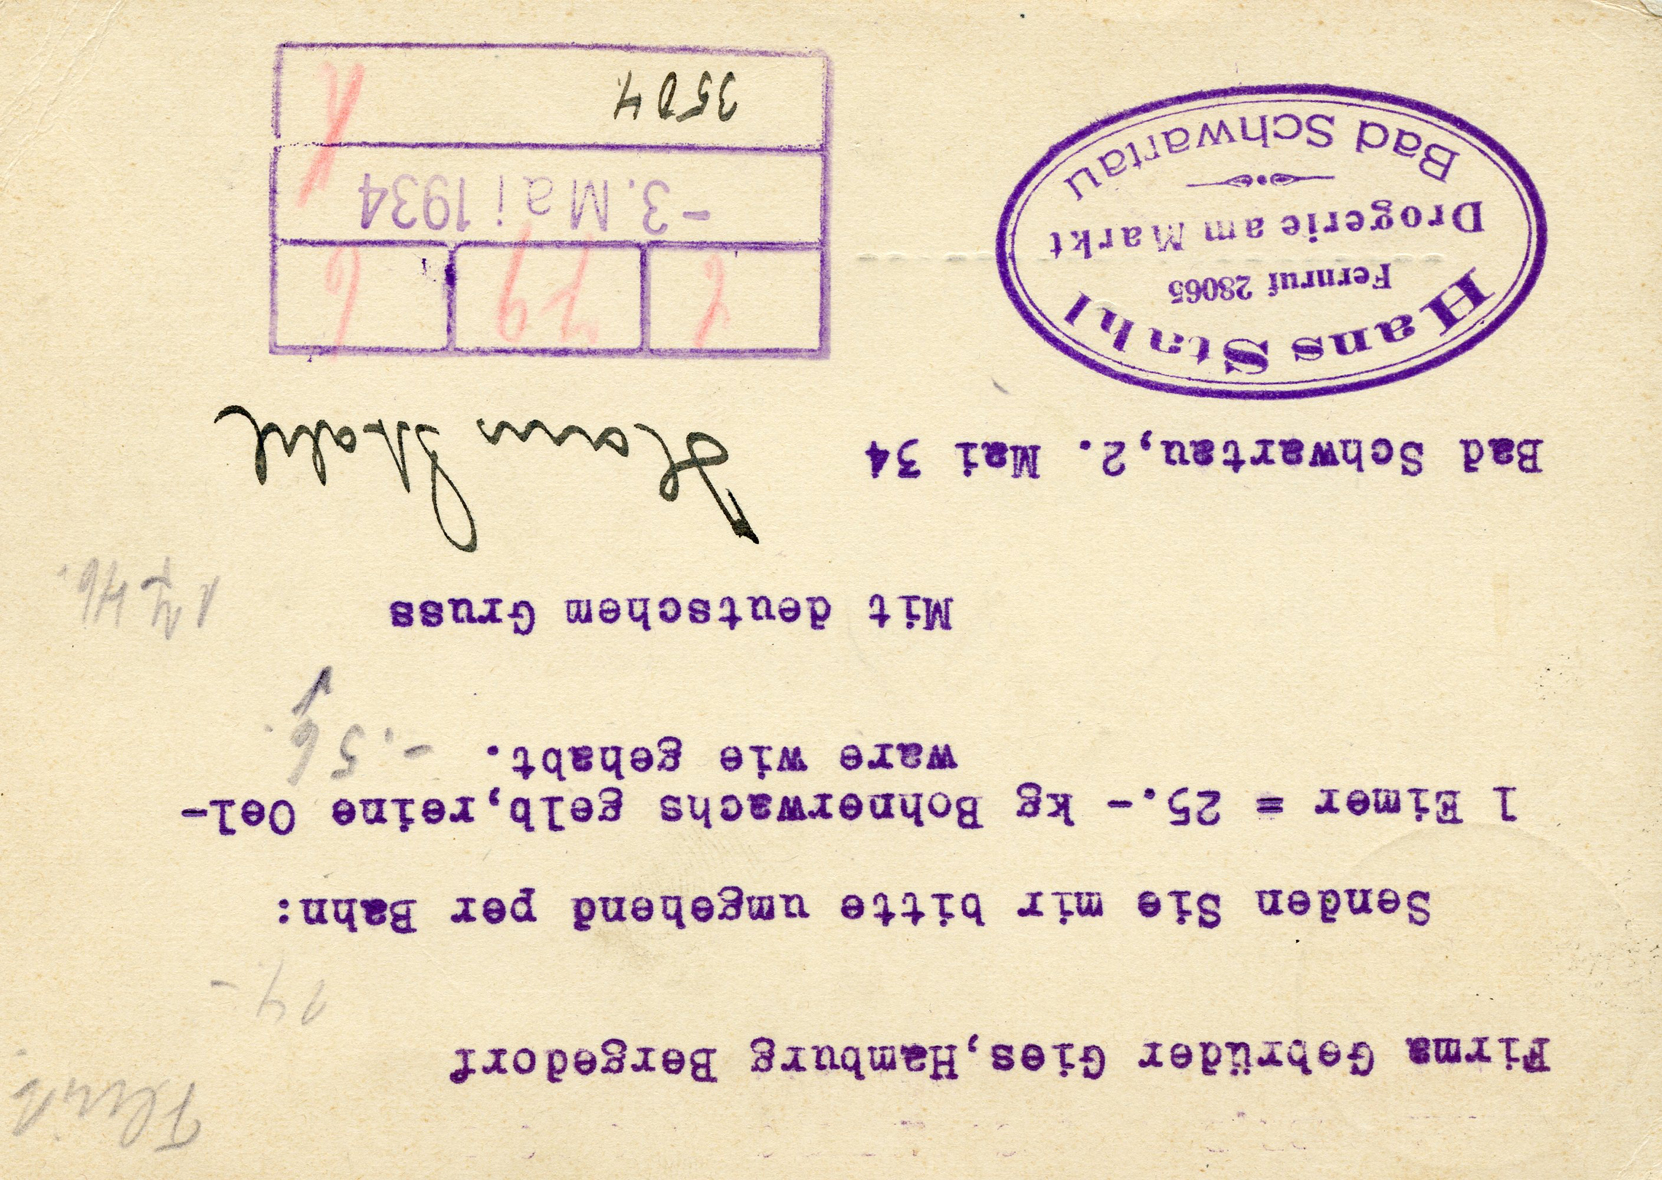 Firma Gebrüder Gies,Hamburg Bergedorf
Senden Sie mir bitte umgehend per Bahn:
1 Eimer = 25.- kg Bohnerwachs gelb,reine Oel-
ware wie gehabt.
-.56
Mit deutschem Gruss
Bad Schwartau,2. Mai 34
Hans Stahl
Hans Stahl
Fernruf 28065
Drogerie am Markt
Bad Schwartau
-3.Mai 1934
3504